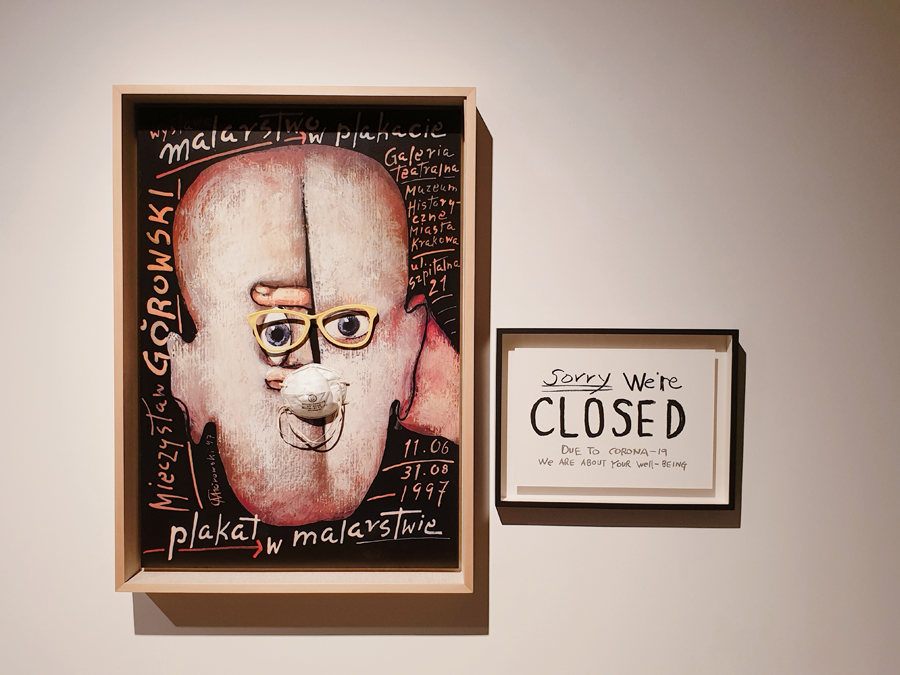 malarstwo w plakacie
Galeria
teatralna
Muzeum
History-
czne
Miasta
Krakowa
ul.
szpitalna
21
Mieczysław GÓROWSKI
11.06
31.08
1997
plakat w malarstwie
Sorry We're
CLOSED
DUE TO CORONA-19
We ARE ABOUT YOUR Well-BEING